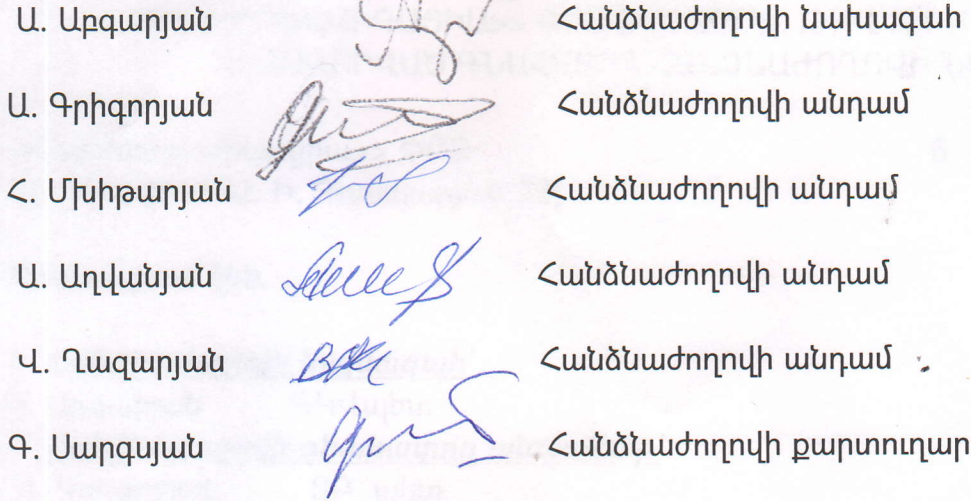 Ա. Աբգարյան Հանձնաժողովի նախագահ
Ա. Գրիգորյան Հանձնաժողովի անդամ
Հ. Մխիթարյան Հանձնաժողովի անդամ
Ա. Աղվանյան Հանձնաժողովի անդամ
Վ. Ղազարյան Հանձնաժողովի անդամ
Գ. Սարգսյան Հանձնաժողովի քարտուղար